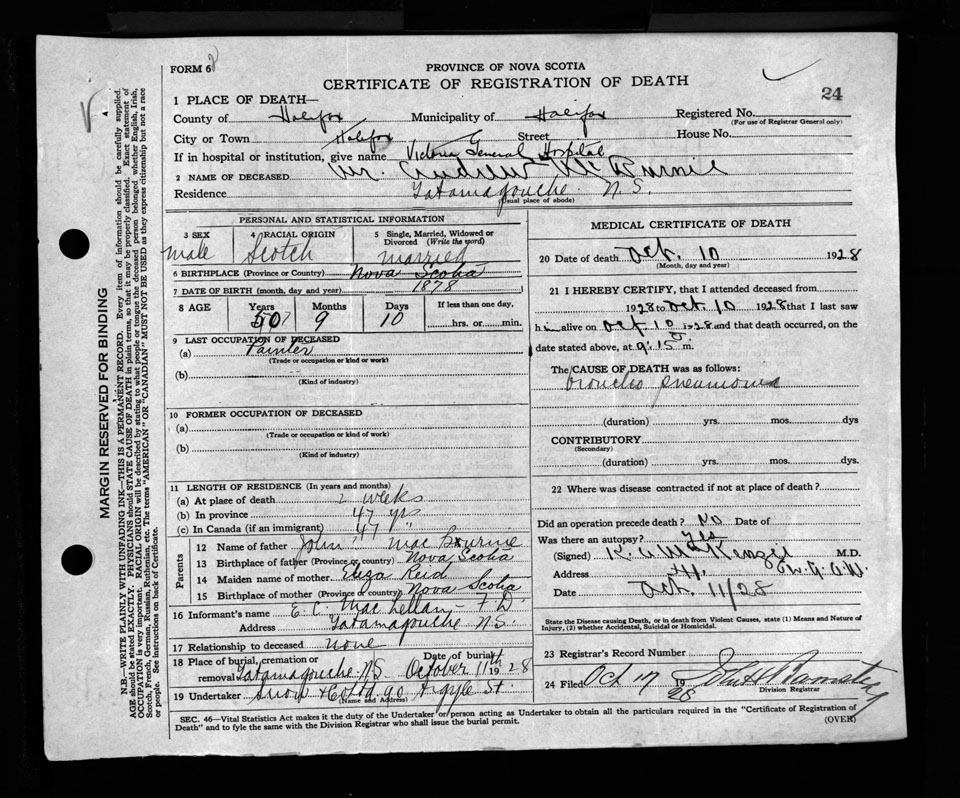 FORM 6
PROVINCE OF NOVA SCOTIA
CERTIFICATE OF REGISTRATION OF DEATH
24
1 PLACE OF DEATH—
County of Halifax Municipality of Halifax Registered No.
(For use of Registrar General only)
City or Town Halifax Street House No.
If in hospital or institution, give name Victoria General Hospital
2 NAME OF DECEASED Mr. Andrew McBurnie
Residence Tatamagouche N.S.
(Usual place of abode)
PERSONAL AND STATISTICAL INFORMATION
3 SEX 4 RACIAL ORIGIN 5 Single, Married, Widowed or Divorced (Write the word)
male Scotch married
6 BIRTHPLACE (Province or Country) Nova Scotia
7 DATE OF BIRTH (month, day and year) 1878
8 AGE Years Months Days If less than one day,
50? 9 10 hrs. or min.
9 LAST OCCUPATION OF DECEASED
(a) Painter
(Trade or occupation or kind of work)
(b)
(Kind of industry)
10 FORMER OCCUPATION OF DECEASED
(a)
(Trade or occupation or kind of work)
(b)
(Kind of industry)
11 LENGTH OF RESIDENCE (In years and months)
(a) At place of death 2 weeks
(b) In province 47 yrs
(c) In Canada (if an immigrant) 47 "
Parents
12 Name of father John MacBurnie
13 Birthplace of father (Province or Country) Nova Scotia
14 Maiden name of mother Eliza Reid
15 Birthplace of mother (Province or Country) Nova Scotia
16 Informant's name E. C. MacLellan - F D
Address Tatamagouche N.S.
17 Relationship to deceased none
18 Place of burial, cremation or removal Tatamagouche NS Date of burial October 11th 1928
19 Undertaker Snow & Co Ltd 90 Argyle St.
(Name and Address)
MEDICAL CERTIFICATE OF DEATH
20 Date of death Oct. 10 1928
(Month, day and year)
21 I HEREBY CERTIFY, that I attended deceased from
1928 to Oct. 10 1928 that I last saw
him alive on Oct 10 1928 and that death occurred, on the
date stated above, at 9.15 m.
The CAUSE OF DEATH was as follows:
broncho pneumonia
(duration) yrs. mos. dys
CONTRIBUTORY
(Secondary)
(duration) yrs. mos. dys.
22 Where was disease contracted if not at place of death?
Did an operation precede death? No Date of
Was there an autopsy? Yes
(Signed) McKenzie M.D.
Address
Date Oct. 11/28
State the Disease causing Death, or in death from Violent Causes, state (1) Means and Nature of
Injury, (2) whether Accidental, Suicidal or Homicidal.
23 Registrar's Record Number
24 Filed Oct 17 1928 John
Division Registrar
SEC. 46—Vital Statistics Act makes it the duty of the Undertaker or person acting as Undertaker to obtain all the particulars required in the "Certificate of Registration of
Death" and to fyle the same with the Division Registrar who shall issue the burial permit.
(OVER)
MARGIN RESERVED FOR BINDING
N.B.—WRITE PLAINLY WITH UNFADING INK—THIS IS A PERMANENT RECORD. Every item of information should be carefully supplied.
AGE should be stated EXACTLY. PHYSICIANS should STATE CAUSE OF DEATH in plain terms, so that it may be properly classified. Exact statement of
OCCUPATION is very important. RACIAL ORIGIN will be described by stating to what people or tongue the deceased person belonged whether English, Irish,
Scotch, French, German, Russian, Ruthenian, etc. The terms "AMERICAN" OR "CANADIAN" MUST NOT BE USED as they express citizenship but not a race
or people. See instructions on back of Certificate.